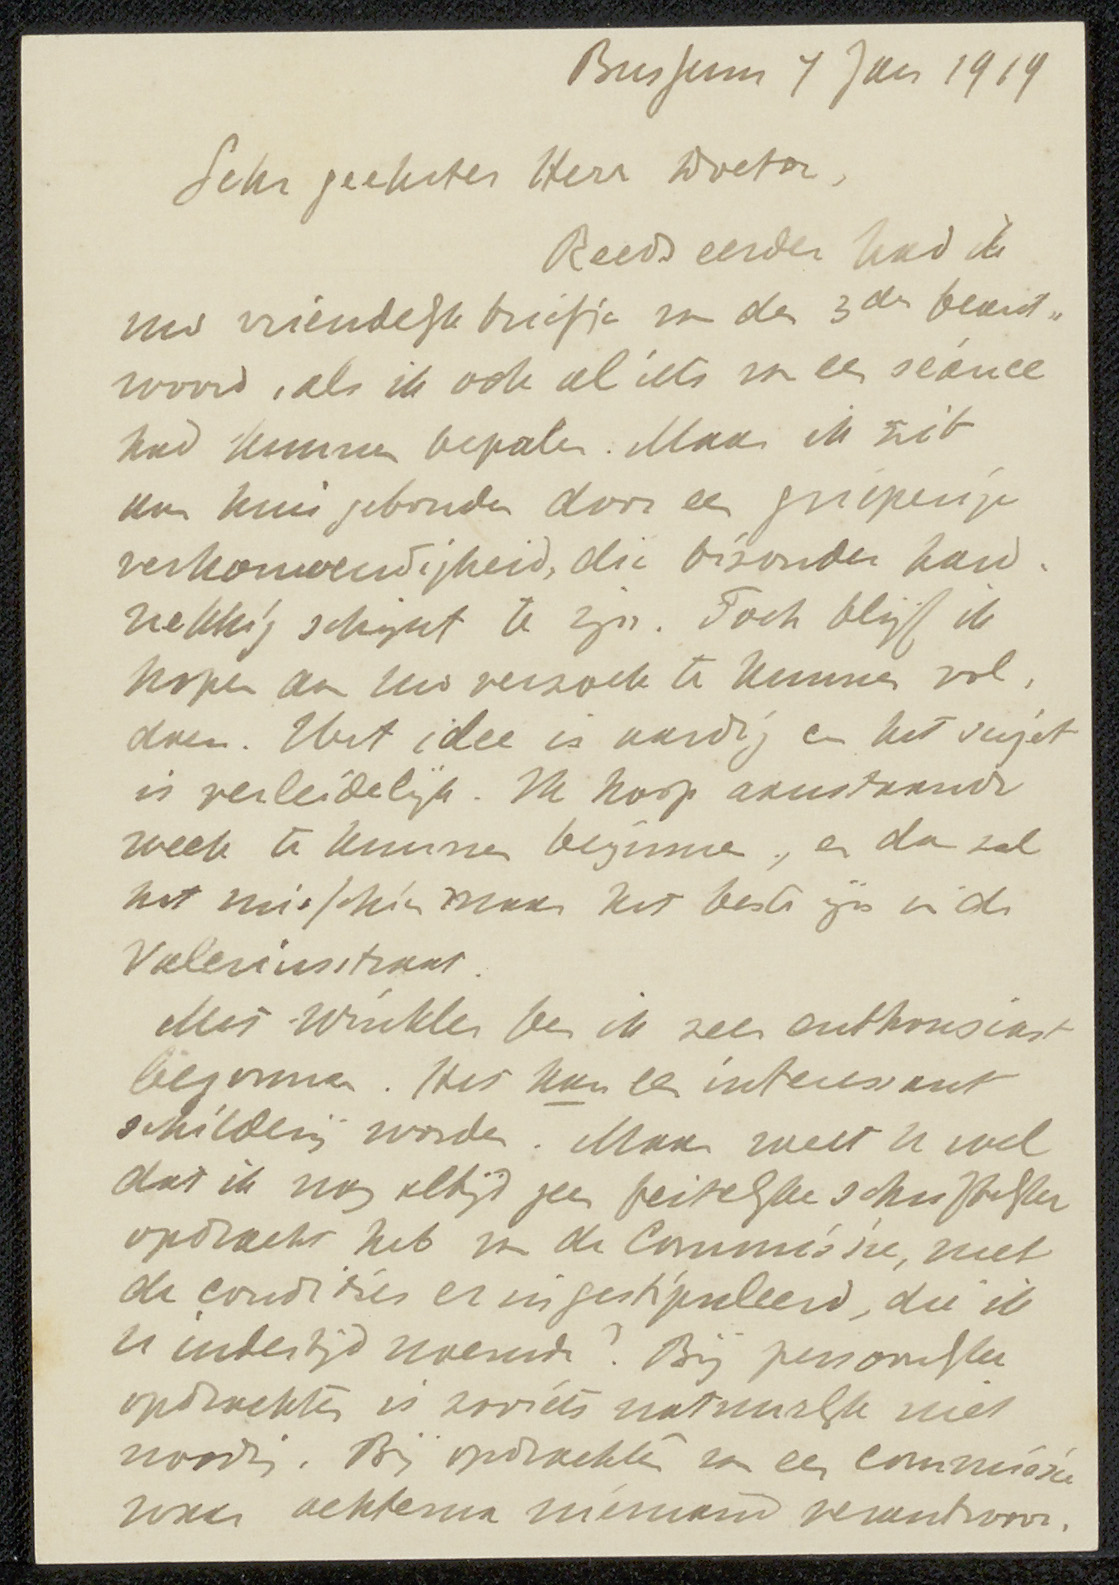 Bussum 7 Jan 1919
Zeer geachter Heer Doctor,
Reeds eerder had ik
uw vriendelijk briefje van den 3den beant„
woord, als ik ook al iets van een séance
had kunnen bepalen. Maar ik zit
aan huis gebonden door een grieperige
verkouwendigheid, die bizonder hard„
nekkig schijnt te zijn. Toch blijf ik
hopen aan uw verzoek te kunnen vol„
doen. Het idee is aardig en het sujet
is verleidelijk. Ik hoop aanstaande
week te kunnen beginnen, en dan zal
het misschien maar het beste zijn in de
Valeriusstraat.
Met Winkler ben ik zeer enthousiast
begonnen. Het kan een interessant
schilderij worden. Maar weet U wel
dat ik nog altijd geen feitelijke schriftelijke
opdracht heb van de Commissie, met
de condities er in gestipuleerd, die ik
U indertijd noemde? Bij persoonlijke
opdrachten is zooiets natuurlijk niet
noodig. Bij opdrachten van een commissie
waar achterna niemand verantwoor„